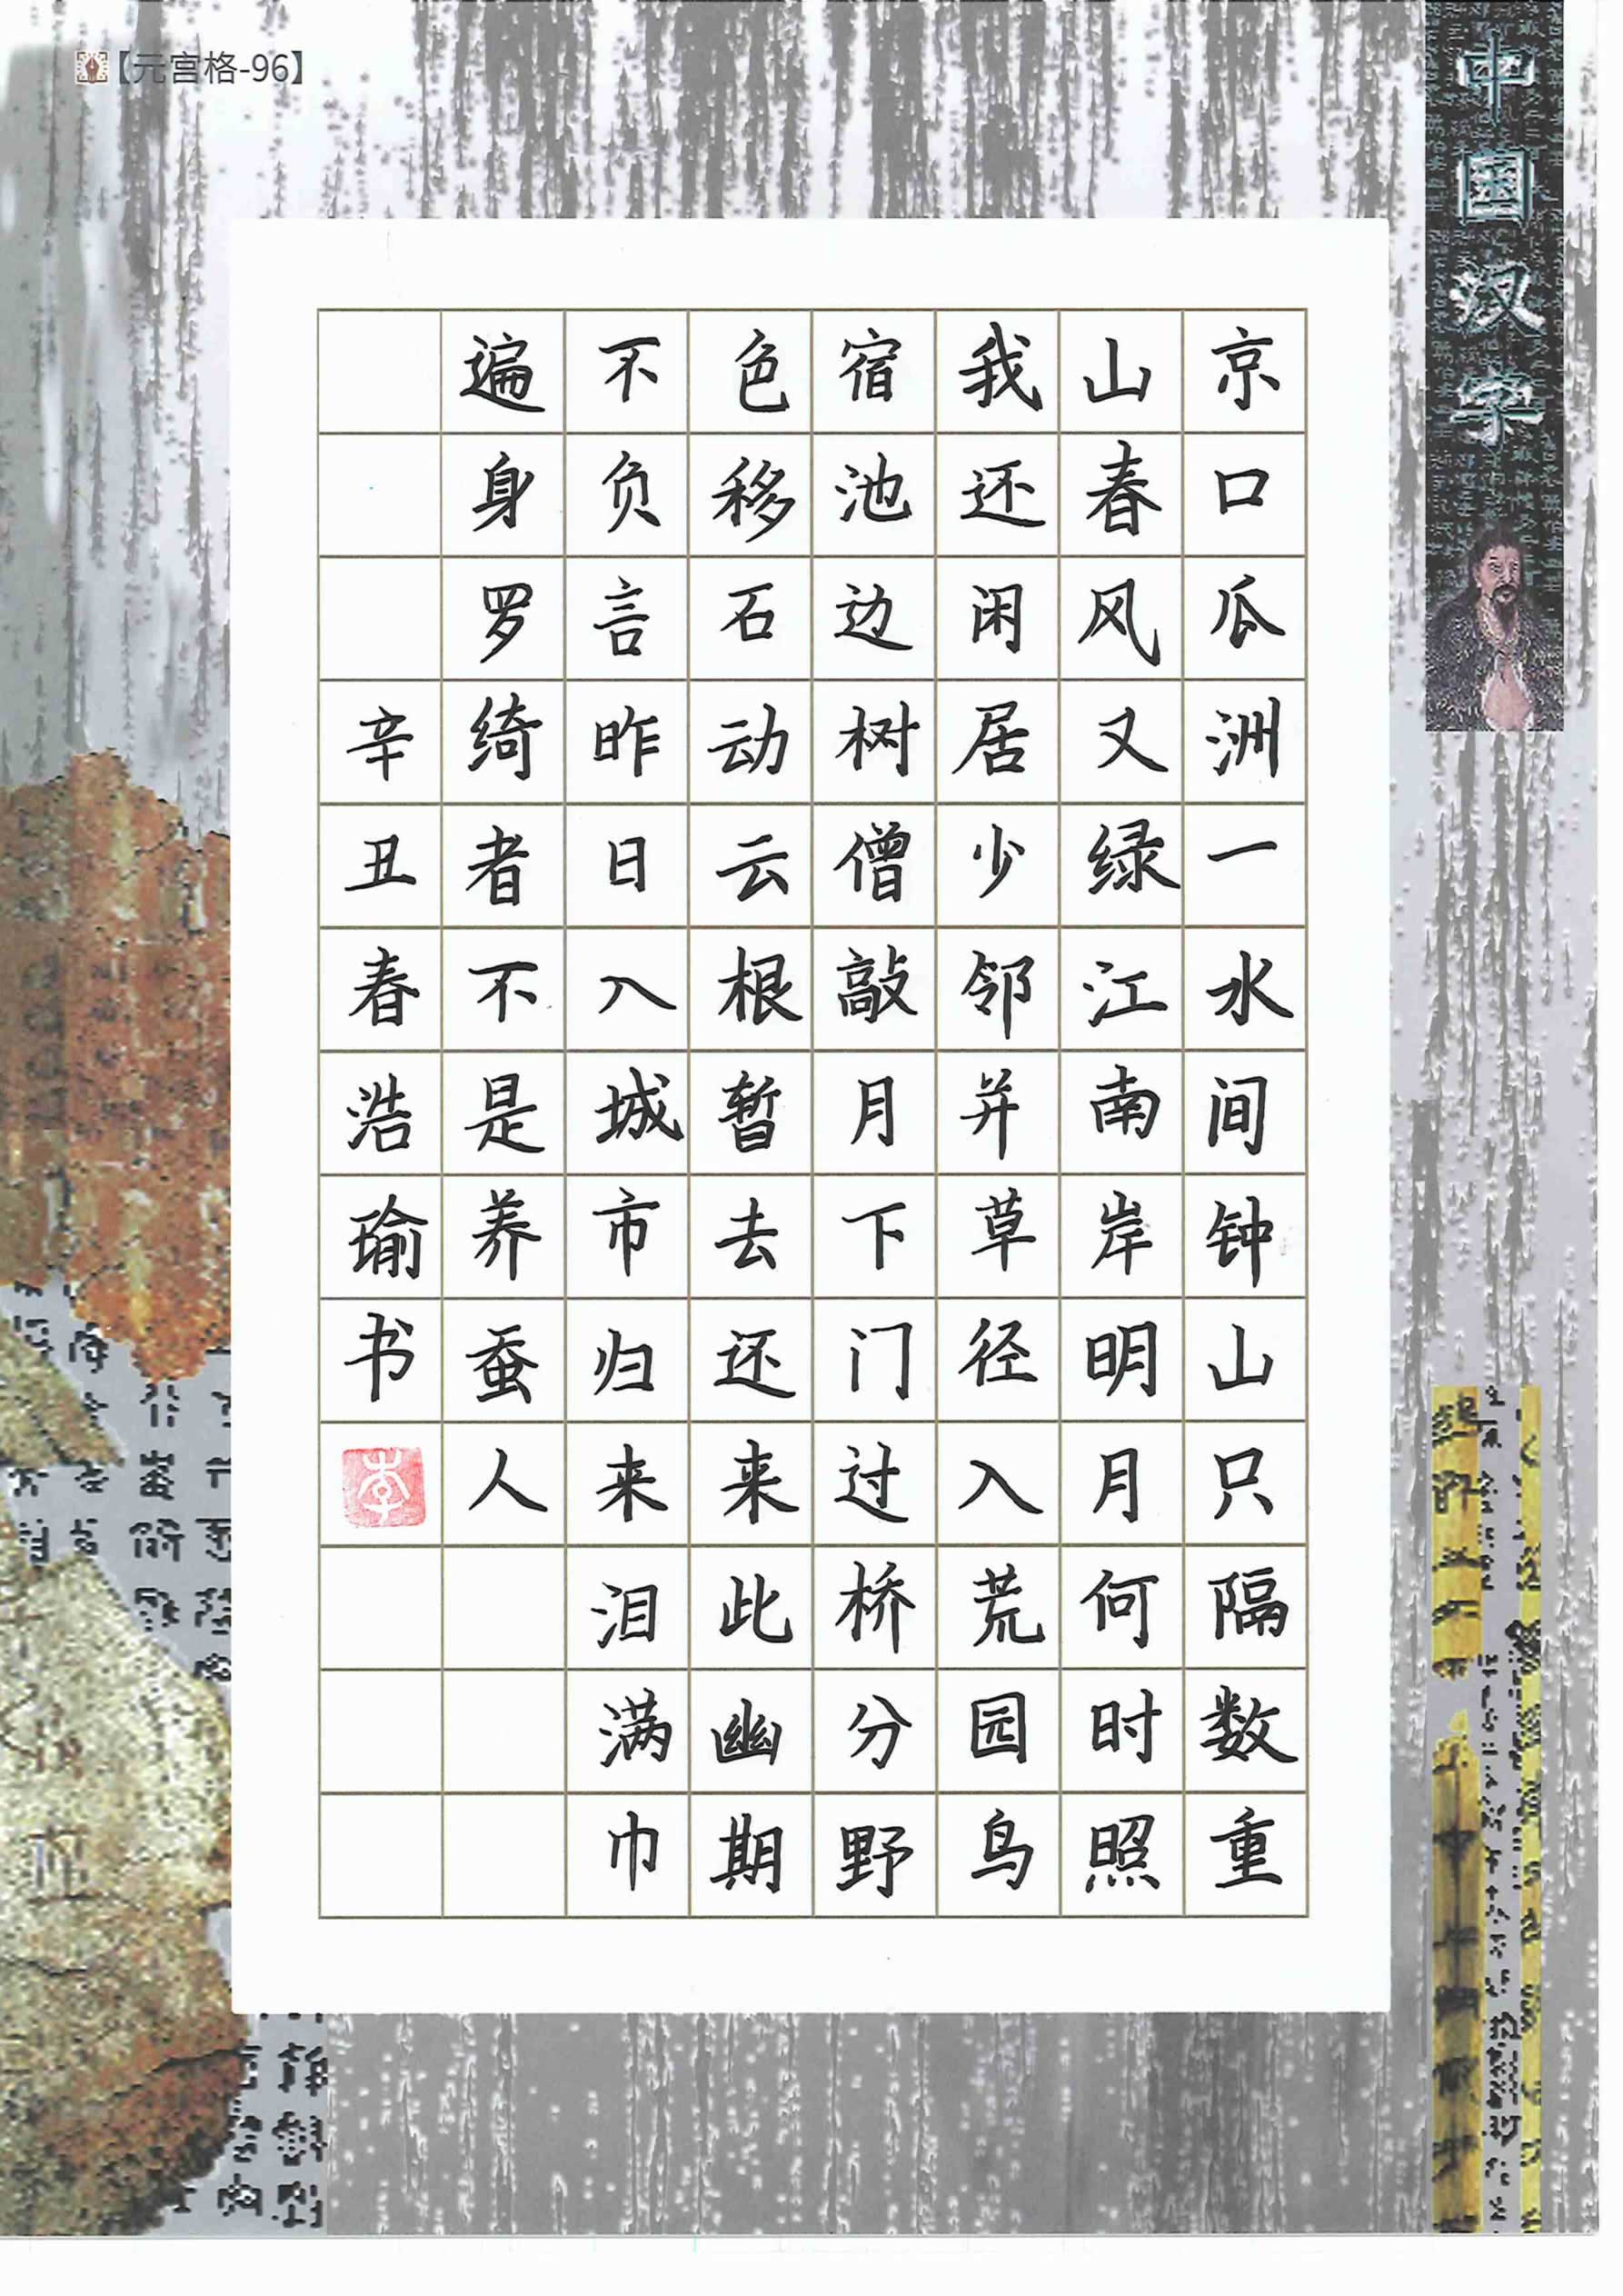 【元宫格-96】
中国汉字
京口瓜洲一水间钟山只隔数重
山春风又绿江南岸明月何时照
我还闲居少邻并草径入荒园鸟
宿池边树僧敲月下门过桥分野
色移石动云根暂去还来此幽期
不负言昨日入城市归来泪满巾
遍身罗绮者不是养蚕人
辛丑春浩瑜书
李